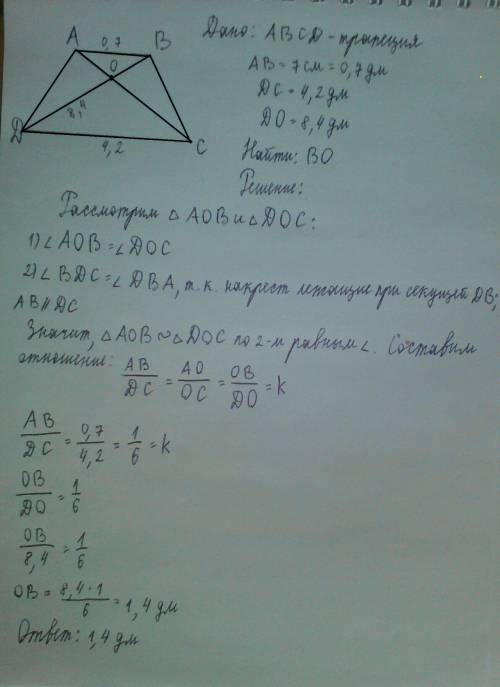 A 0,7 B
O
8,4
D
4,2 C
Дано: ABCD - трапеция
AB = 7см = 0,7 дм
DC = 4,2 дм
DO = 8,4 дм
Найти: BO
Решение:
Рассмотрим △AOB и △DOC:
1) ∠AOB = ∠DOC
2) ∠BDC = ∠DBA, т.к. накрест лежащие при секущей DB;
AB || DC
Значит, △AOB ~ △DOC по 2-м равным ∠. Составим
отношение: AB/DC = AO/OC = OB/DO = k
AB/DC = 0,7/4,2 = 1/6 = k
OB/DO = 1/6
OB/8,4 = 1/6
OB = 8,4·1/6 = 1,4 дм
Ответ: 1,4 дм